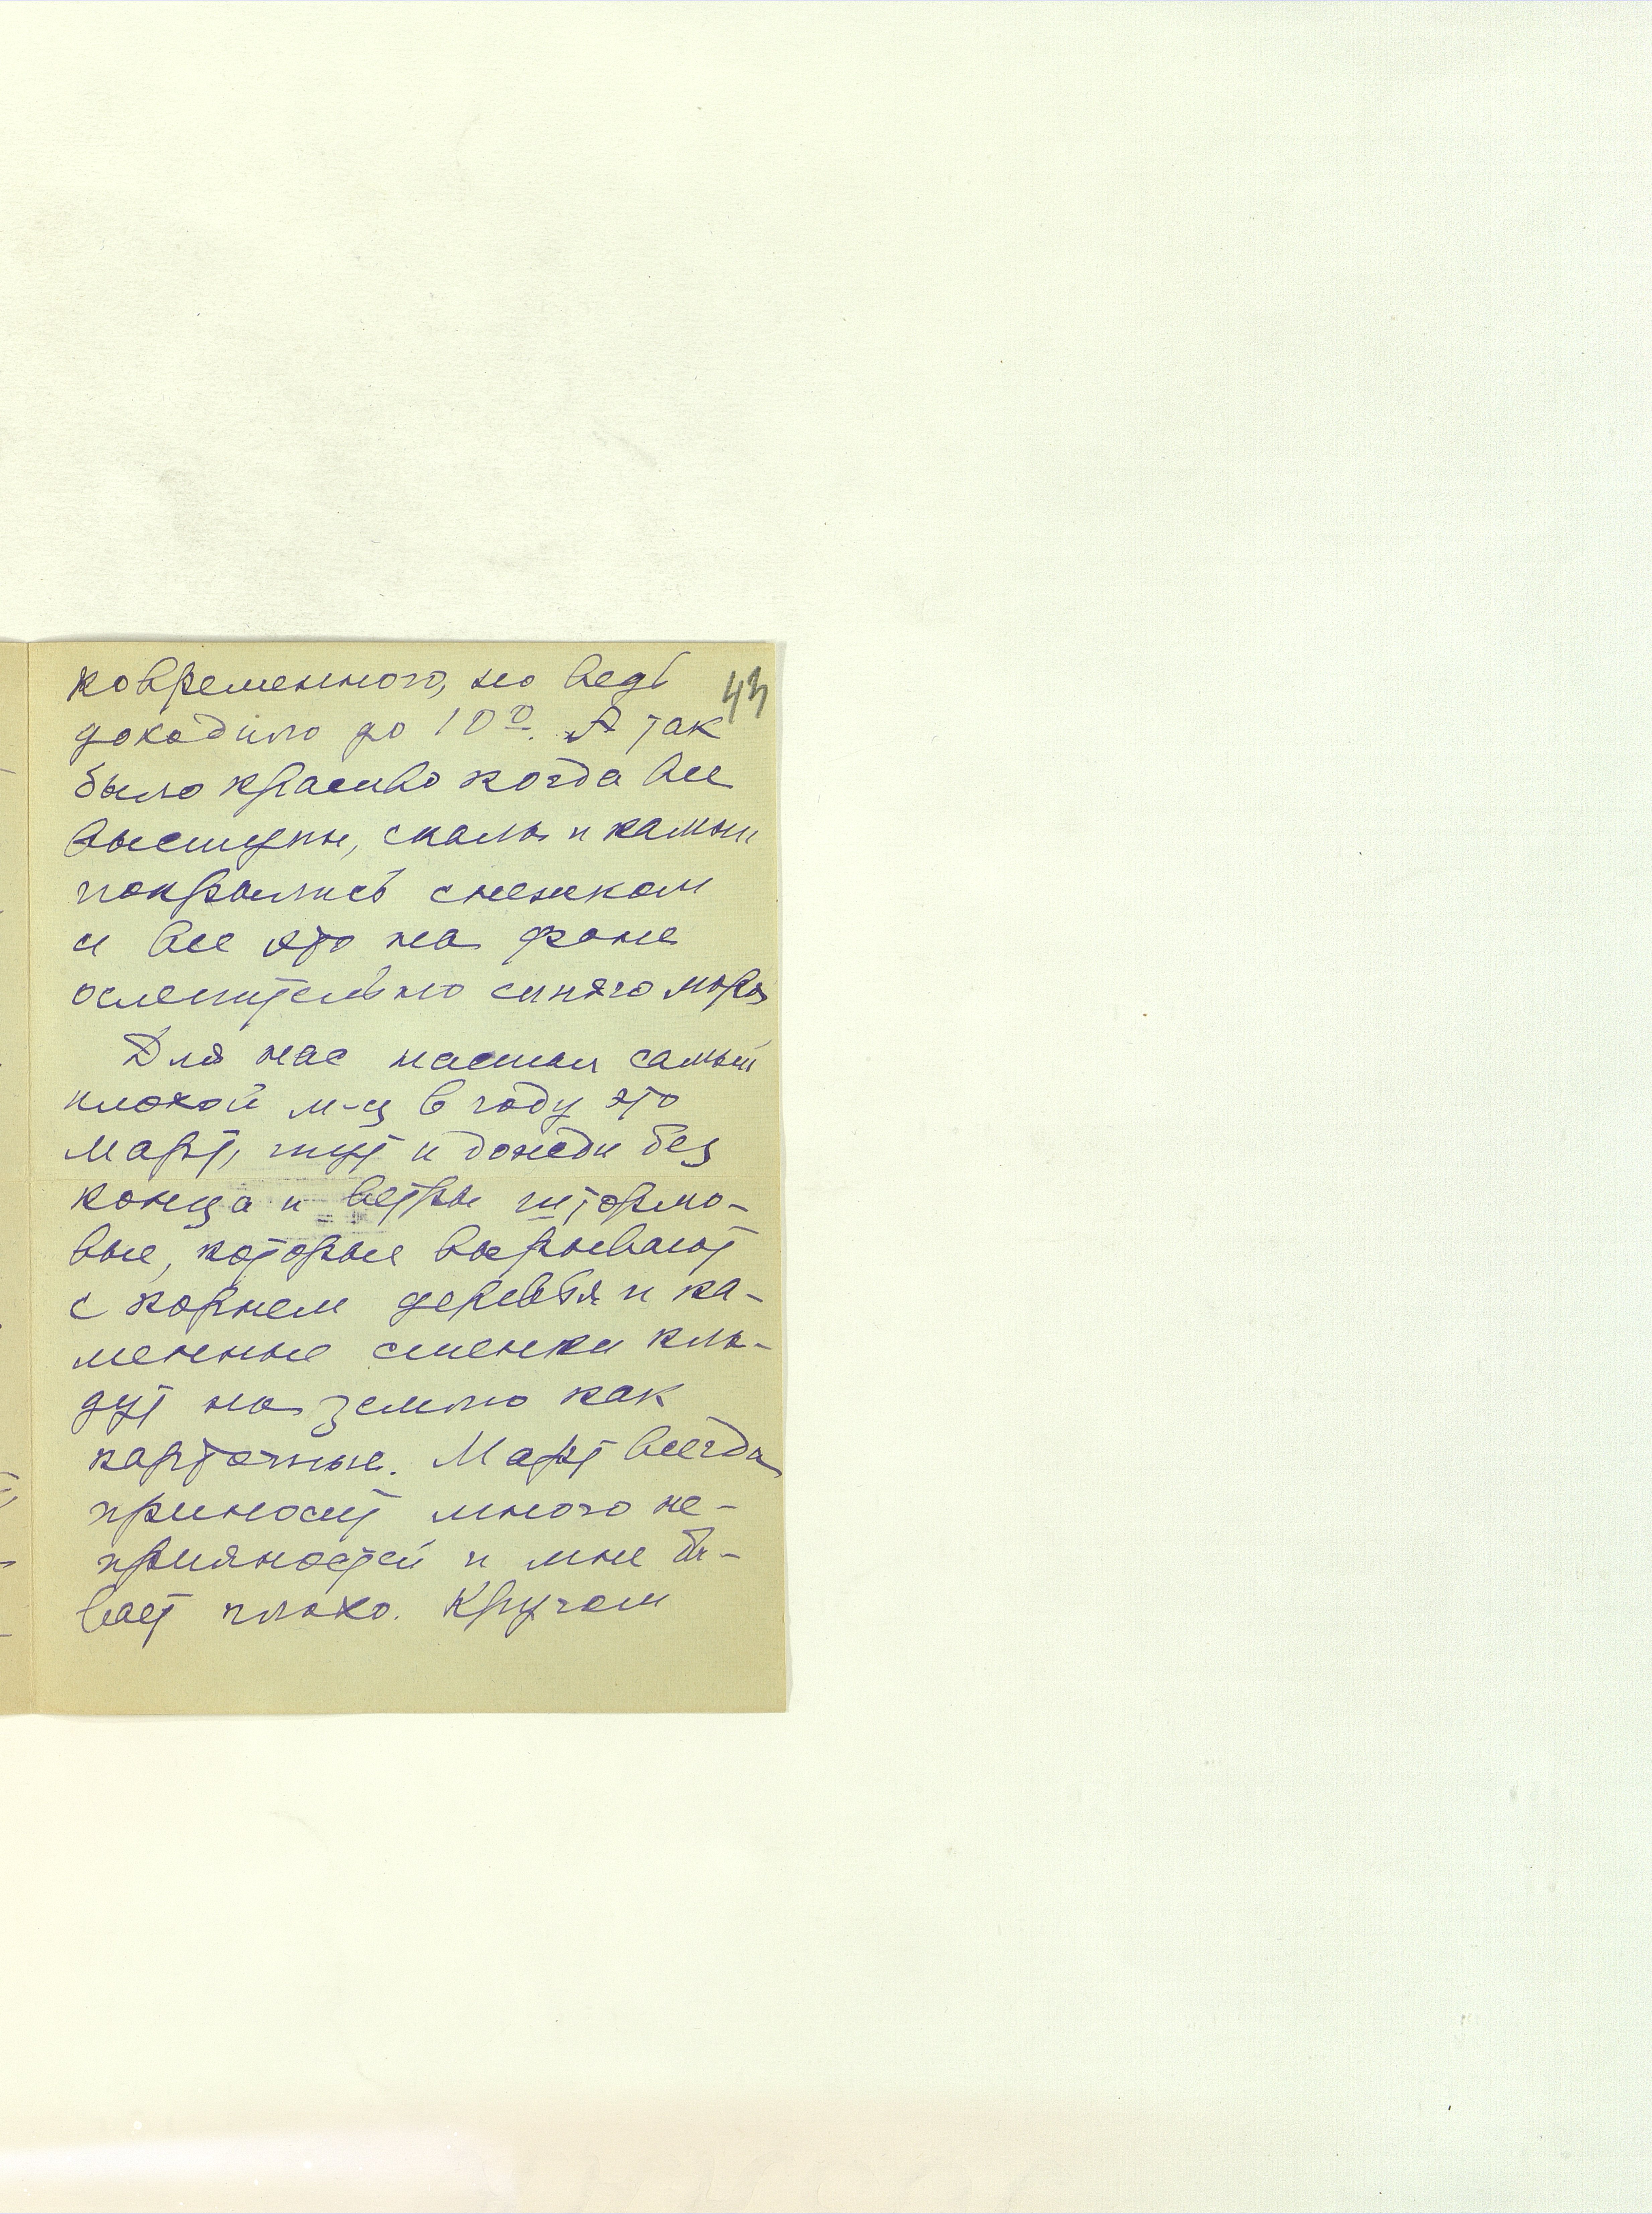 ковременного, но ведь
43
доходило до 10°. А так
было красиво когда все
выступы, скалы и камни
покрылись снежком
и все это на фоне
ослепительно синяго моря
Для нас настал самый
плохой м-ц в году это
март, тут и дожди без
конца и ветры штормо-
вые, которые вырывают
с корнем деревья и ка-
менные стенки кла-
дут на землю как
карточные. Март всегда
приносит много не-
приятностей и мне бы-
вает плохо. Кругом